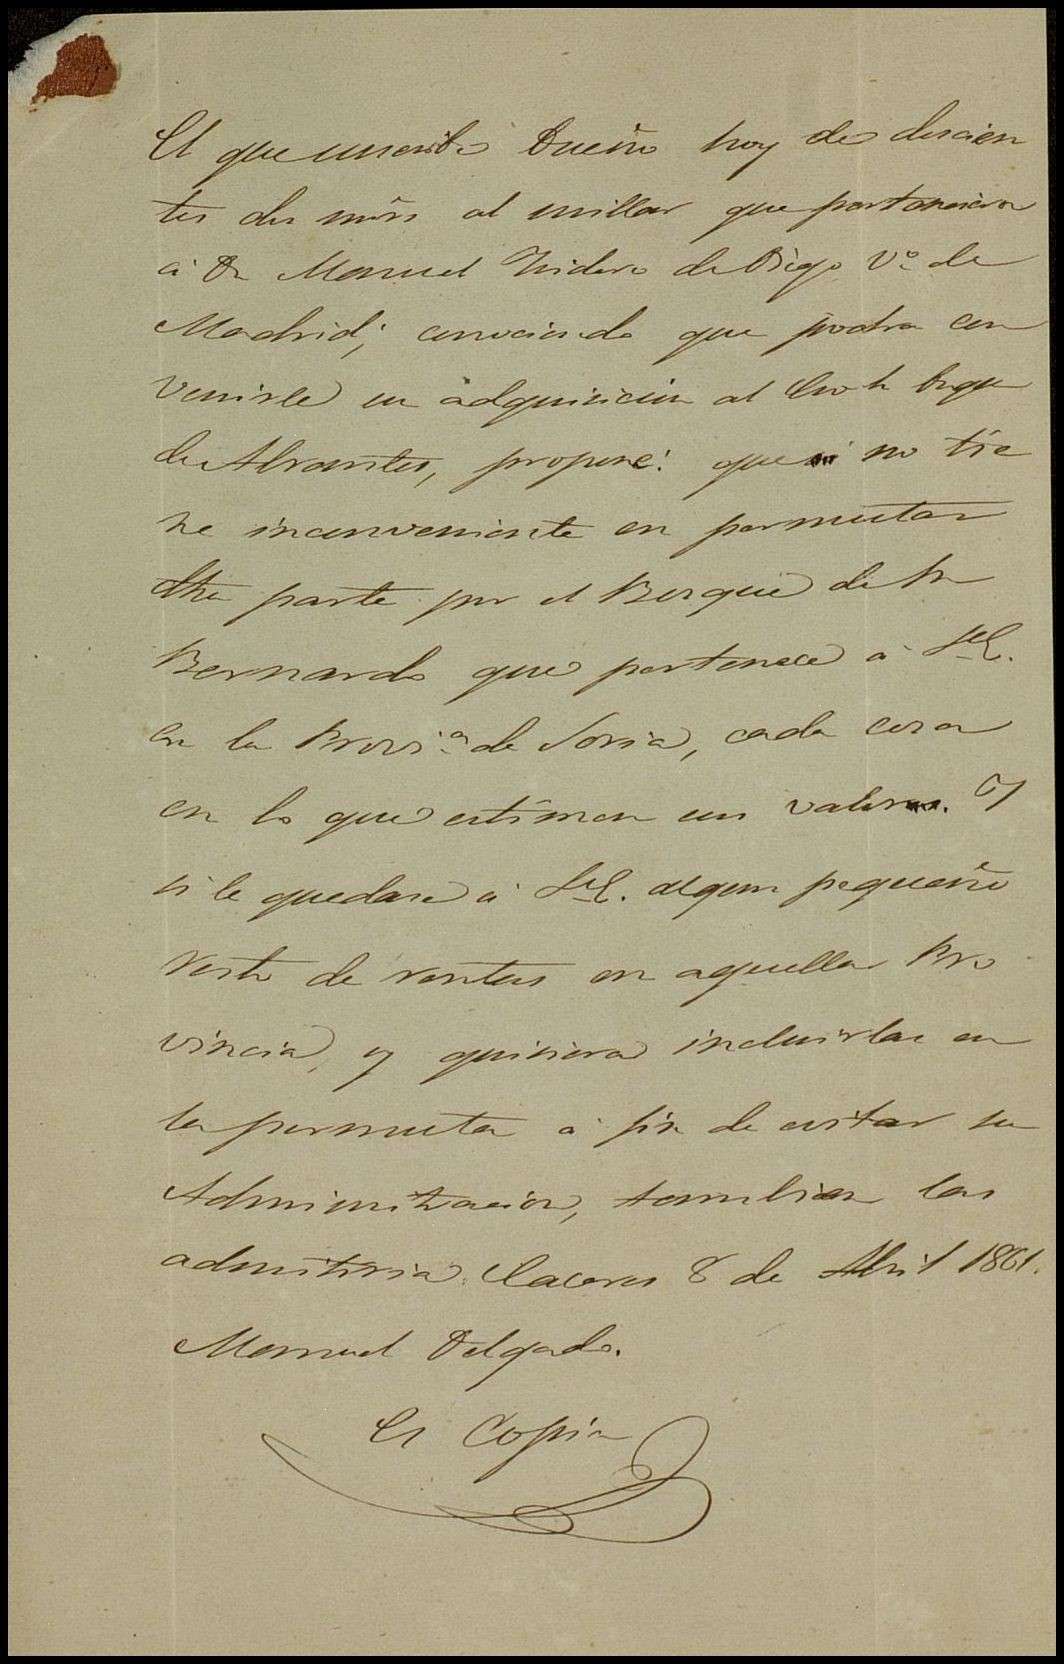 El que suscribe Dueño hoy de doscien
tos dos mrs al millar que pertenecieron
á Dn Manuel Ysidoro de Diego Vº de
Madrid; conociendo que podra con
venirle su adquisicion al Exmo Sr Duque
de Abrantes, propone: que no tie
ne inconveniente en permutar
dha parte por el Bosque de Sn
Bernardo que pertenece á S.E.
en la Provia de Soria, cada cosa
en lo que estimen su valor. Y
si le quedase á S.E. algun pequeño
resto de rentas en aquella Pro
vincia, y quisiera incluirlas en
la permuta á fin de evitar su
Administracion, tambien las
admitiria. Caceres 8 de Abril 1861.
Manuel Delgado.
Es Copia